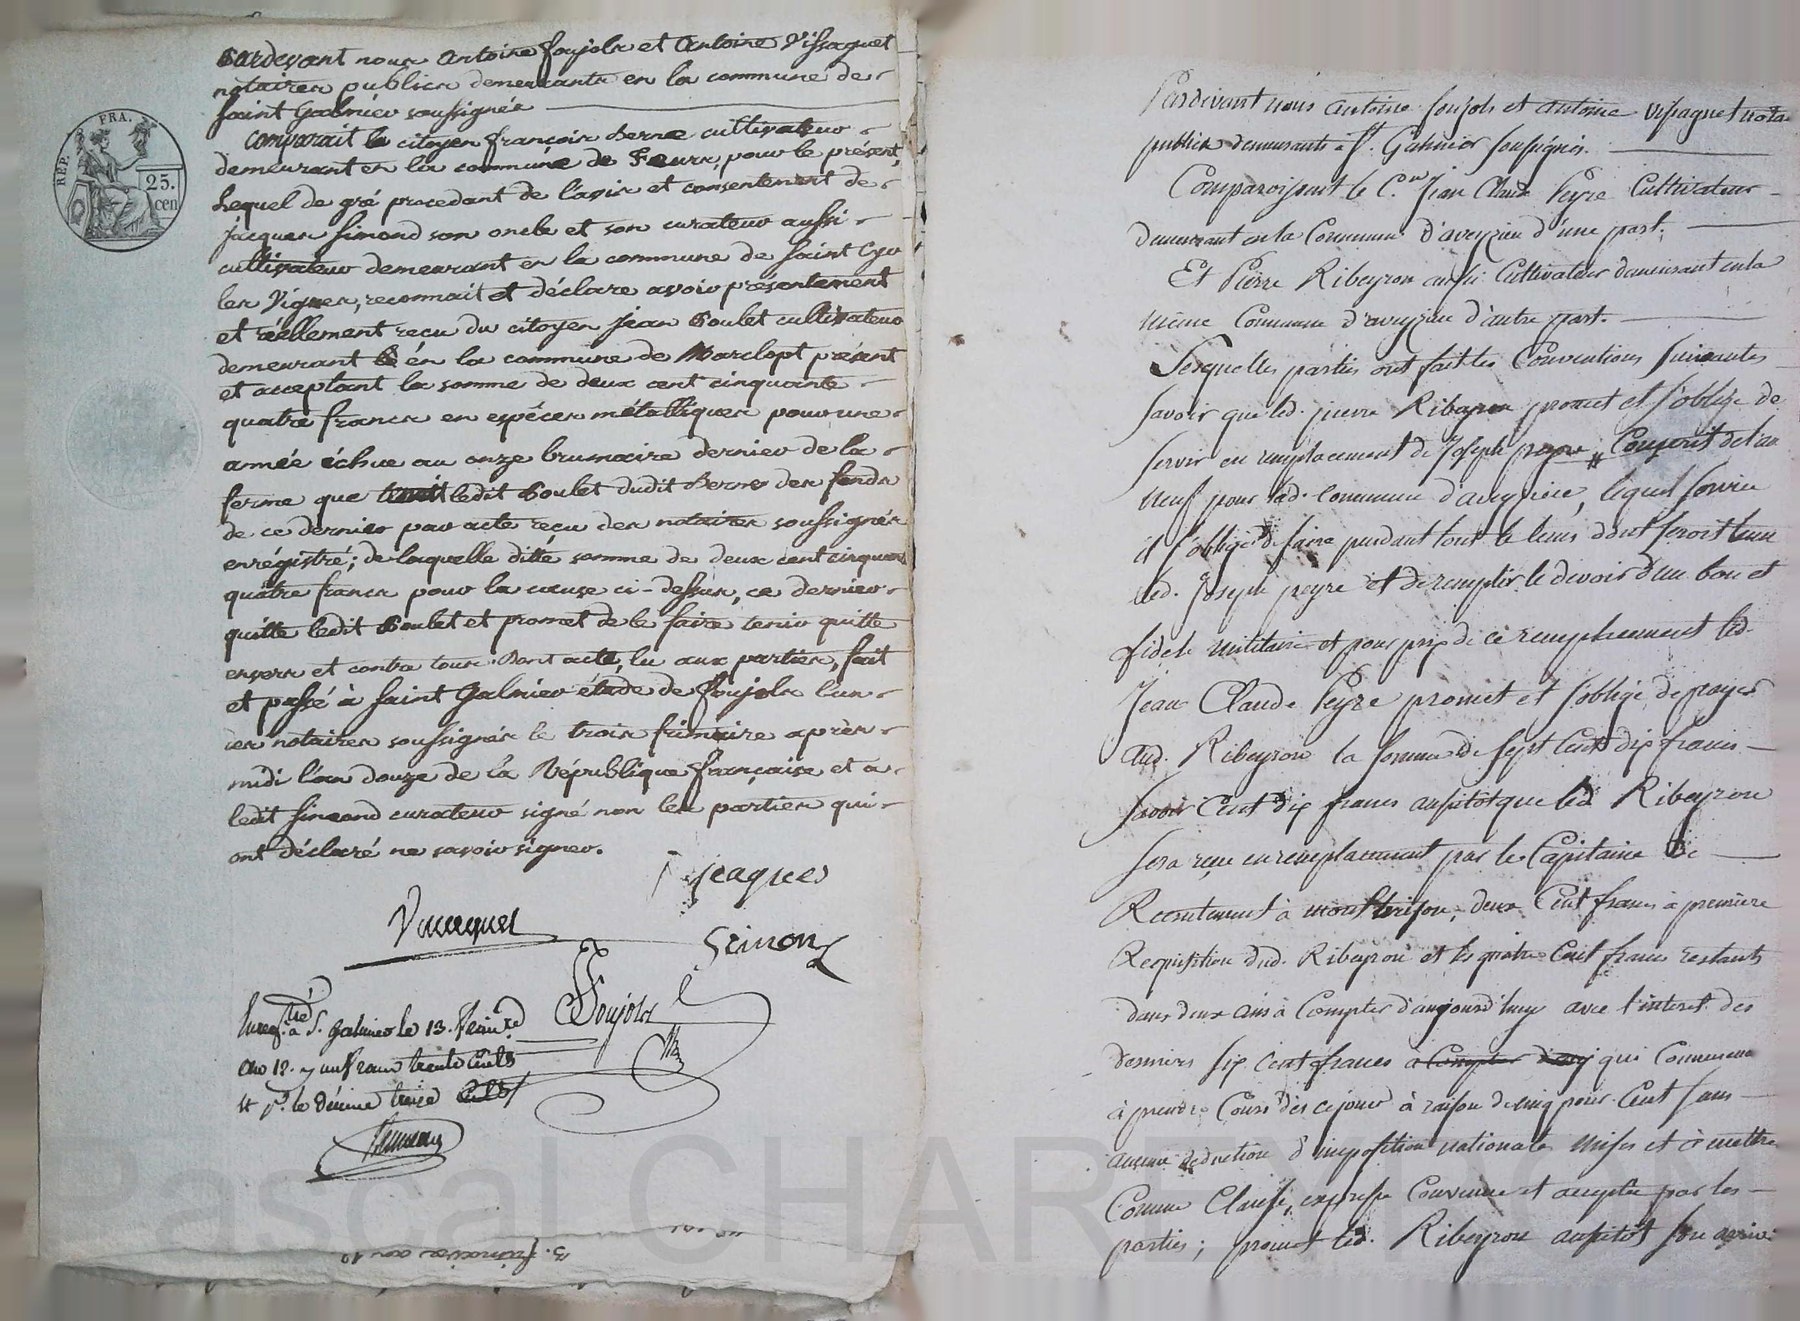 pardevant nous antoine foujols et antoine Vissaguet
notaires publics demeurants en la commune de
saint Galmier soussignés
Comparait le citoyen françois Berne cultivateur
demeurant en la commune de Feurs, pour le présent,
Lequel de gré procedant de l'avis et consentement de
jacques simond son oncle et son curateur aussi
cultivateur demeurant en la commune de saint Cyr
les Vignes, reconnait et déclare avoir présentement
et réellement reçu du citoyen jean Boulet cultivateur
demeurant en la commune de Marclopt présent
et acceptant la somme de deux cent cinquante
quatre francs en espéces métalliques pour une
année échue au onze brumaire dernier de la
ferme que tient ledit Boulet dudit Berne des fonds
de ce dernier par acte reçu des notaires soussignés
enrégistré; de laquelle ditte somme de deux cent cinquante
quatre francs pour la cause ci-dessus, ce dernier
quitte ledit Boulet et promet de le faire tenir quitte
envers et contre tous. Dont acte, lu aux parties, fait
et passé à saint Galmier étude de foujols l'un
des notaires soussignés le trois frimaire après
midi l'an douze de la République française et a
ledit simond curateur signé non les parties qui
ont déclaré ne savoir signer.
jeaques
Simon
Foujols
Enregtré à St. galmier le 13. frimre
an 12. un franc trente cents
et pr. le décime treize
3. frimaire an 12
REP. FRA.
25.
cen
Pardevant nous antoine foujols et antoine Vissaguet nota
publics demeurants à St. Galmier soussignés.
Comparoissent le Cen. Jean Claude Peyre Cultivateur
demeurant en la Commune d'aveyzieu d'une part,
Et Pierre Ribeyron aussi Cultivateur demeurant en la
même Commune d'aveyzieu d'autre part.
Lesquelles parties ont fait les Conventions suivantes
savoir que led. pierre Ribeyron promet et s'oblige de
servir en remplacement de Joseph peyre Conscrit de l'an
neuf pour lad. commune d'aveyzieu, lequel service
il s'oblige de faire pendant tout le tems dont seroit tenu
led. Joseph peyre et de remplir le devoir d'un bon et
fidele militaire et pour prix de ce remplacement led.
Jean Claude Peyre promet et s'oblige de payer
aud. Ribeyron la somme de sept Cent dix francs
savoir Cent dix francs aussitôt que led. Ribeyron
sera reçu en remplacement par le Capitaine de
Recrutement à montbrison, deux Cent francs à première
Requisition dud. Ribeyron et les quatre Cent francs restants
dans deux ans à Compter d'aujourd'huy avec l'interet des
derniers six cent francs à Compter qui Commence
à prendre Cours dès ce jour à raison de cinq pour Cent sans
aucune déduction d'imposition nationale mises et à mettre
Comme Clause expresse Convenue et acceptée par les
parties; promet led. Ribeyron aussitôt son arrivé
Pascal CHAREYRON